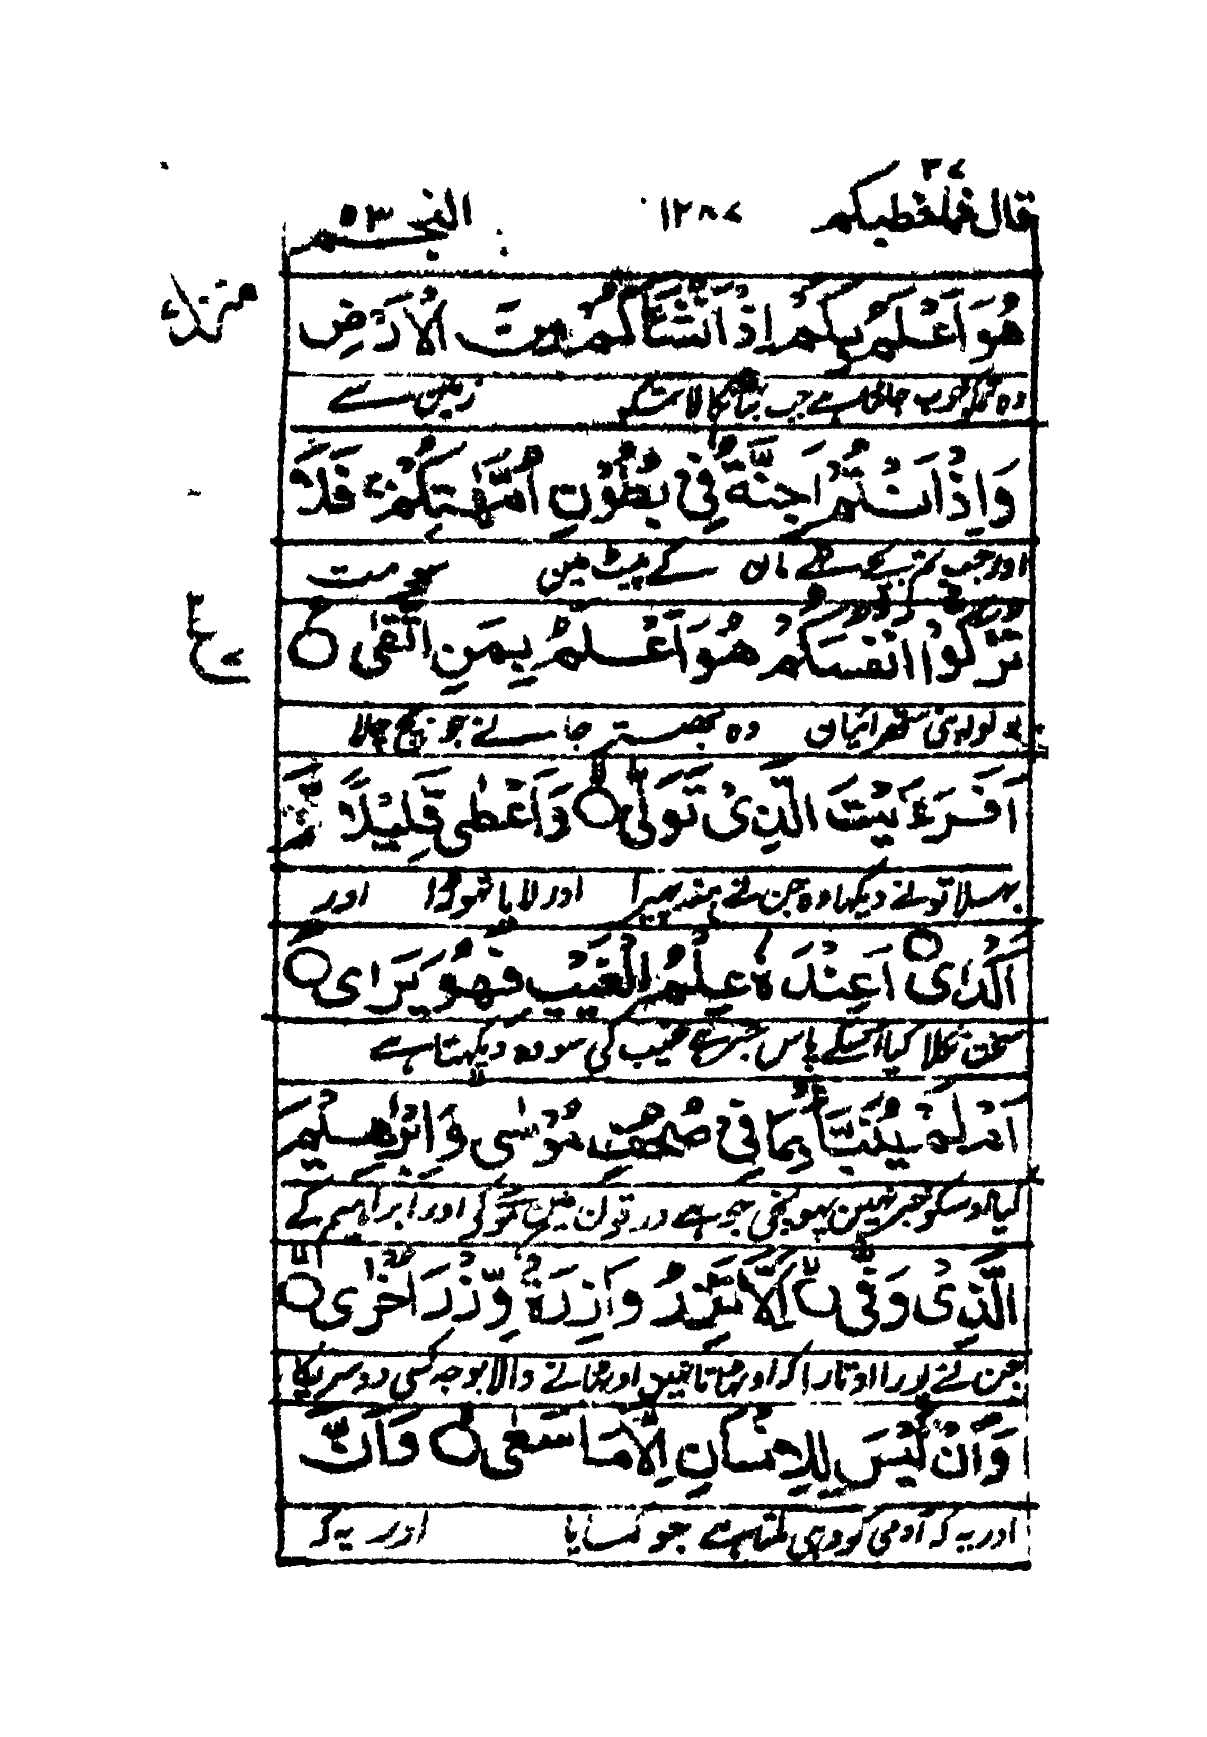 قال فما خطبكم ٢٧ ١٢٨٧ النجم ٥٣
هُوَ اَعْلَمُ بِكُمْ اِذْ اَنْشَاَكُمْ مِنَ الْاَرْضِ
منزل
وہ تمکو خوب جانتا ہے جب بنا نکالا تمکو زمین سے
وَاِذْ اَنْتُمْ اَجِنَّةٌ فِیْ بُطُوْنِ اُمَّهٰتِكُمْ فَلَا
اور جب تم بچے تھے ماں کے پیٹ میں سو مت
تُزَكُّوْا اَنْفُسَكُمْ هُوَ اَعْلَمُ بِمَنِ اتَّقٰی
بولو اپنی ستھرائیاں وہ بہتر جانے جو بچ چلا
اَفَرَءَیْتَ الَّذِیْ تَوَلّٰی وَاَعْطٰی قَلِیْلًا وَّ
بہلا تو نے دیکھا وہ جن نے منہ پھیرا اور لایا تھوڑا اور
اَكْدٰی اَعِنْدَهٗ عِلْمُ الْغَیْبِ فَهُوَ یَرٰی
سخت نکلا کیا اسکے پاس خبر ہے غیب کی سو وہ دیکھتا ہے
اَمْ لَمْ یُنَبَّاْ بِمَا فِیْ صُحُفِ مُوْسٰی وَاِبْرٰهِیْمَ
کیا اوسکو خبر نہیں پہونچی جو ہے ورقوں میں موسی کی اور ابراہیم کے
الَّذِیْ وَفّٰی اَلَّا تَزِرُ وَازِرَةٌ وِّزْرَ اُخْرٰی
جن نے پورا اوتارا کہ اوٹھاتا نہیں اوٹھانے والا بوجھ کسی دوسریکا
وَاَنْ لَیْسَ لِلْاِنْسَانِ اِلَّا مَا سَعٰی وَاَنَّ
اور یہ کہ آدمی کو وہی ملتا ہے جو کمایا اور یہ کہ